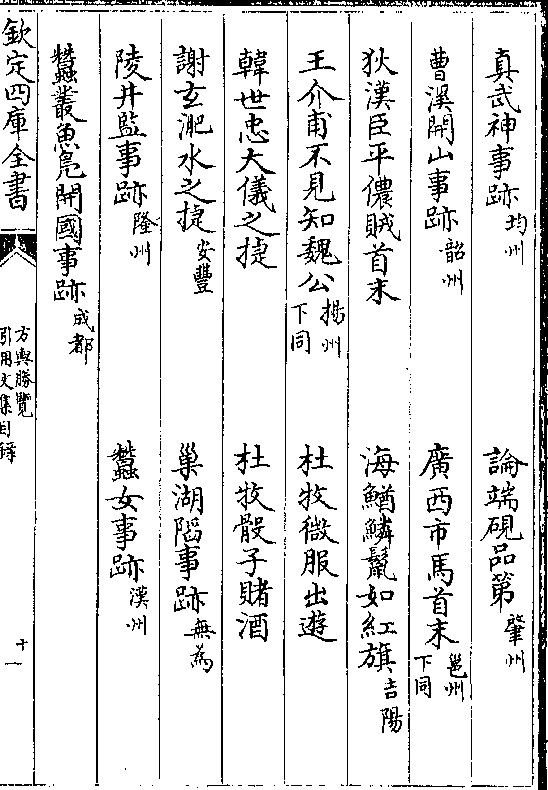 真武神事跡均州 論端硯品第肇州
曹溪開山事跡韶州 廣西市馬首末邕州下同
狄漢臣平儂賊首末 海鰌鱗鬛如紅旗吉陽
王介甫不見知魏公揚州下同 杜牧微服出遊
韓世忠大儀之捷 杜牧骰子賭酒
謝玄淝水之捷安豐 巢湖䧟事跡無為
陵井監事跡隆州 蠶女事跡漢州
蠶叢魚鳧開國事跡成都
欽定四庫全書
方輿勝覽
引用文集目録
十一